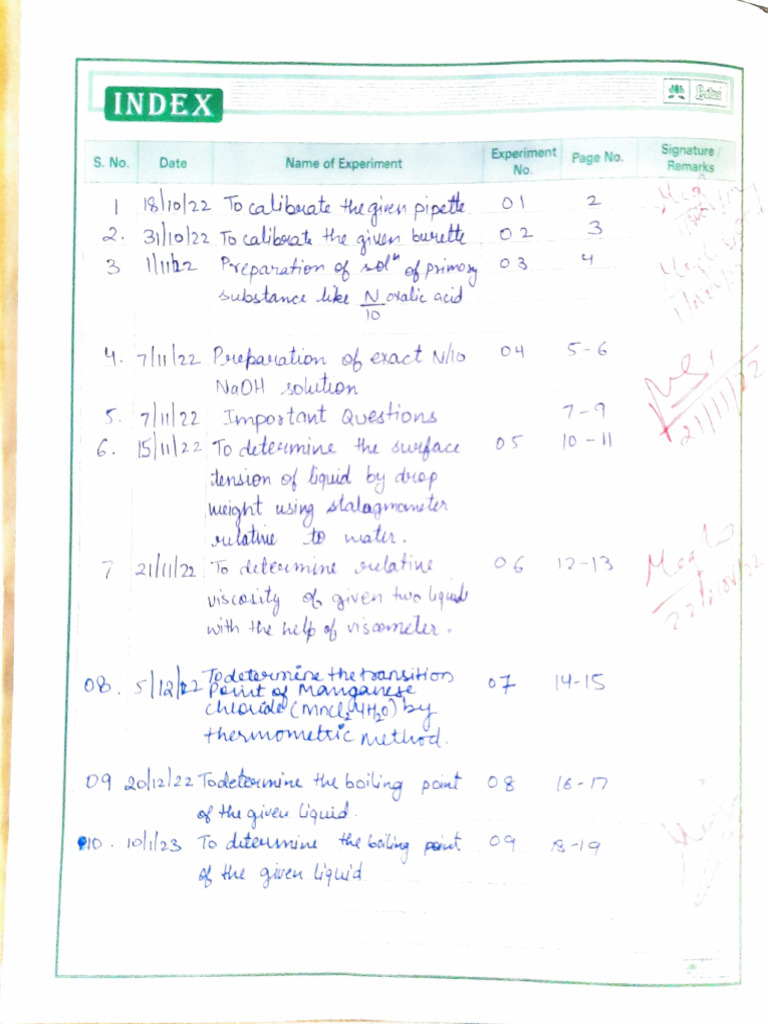 INDEX
S. No. Date Name of Experiment Experiment No. Page No. Signature / Remarks
1 18/10/22 To calibrate the given pipette 01 2
2. 31/10/22 To calibrate the given burette 02 3
3 1/11/22 Preparation of solⁿ of primary 03 4
substance like N/10 oxalic acid
4. 7/11/22 Preparation of exact N/10 04 5-6
NaOH solution
5. 7/11/22 Important Questions 7-9
21/11/22
6. 15/11/22 To determine the surface 05 10-11
tension of liquid by drop
weight using stalagmometer
relative to water.
7 21/11/22 To determine relative 06 12-13
viscosity of given two liquid
with the help of viscometer.
08. 5/12/22 To determine the transition 07 14-15
Point of Manganese
chloride (MnCl₂4H₂O) by
thermometric method.
09 20/12/22 To determine the boiling point 08 16-17
of the given liquid.
10. 10/1/23 To determine the boiling point 09 18-19
of the given liquid